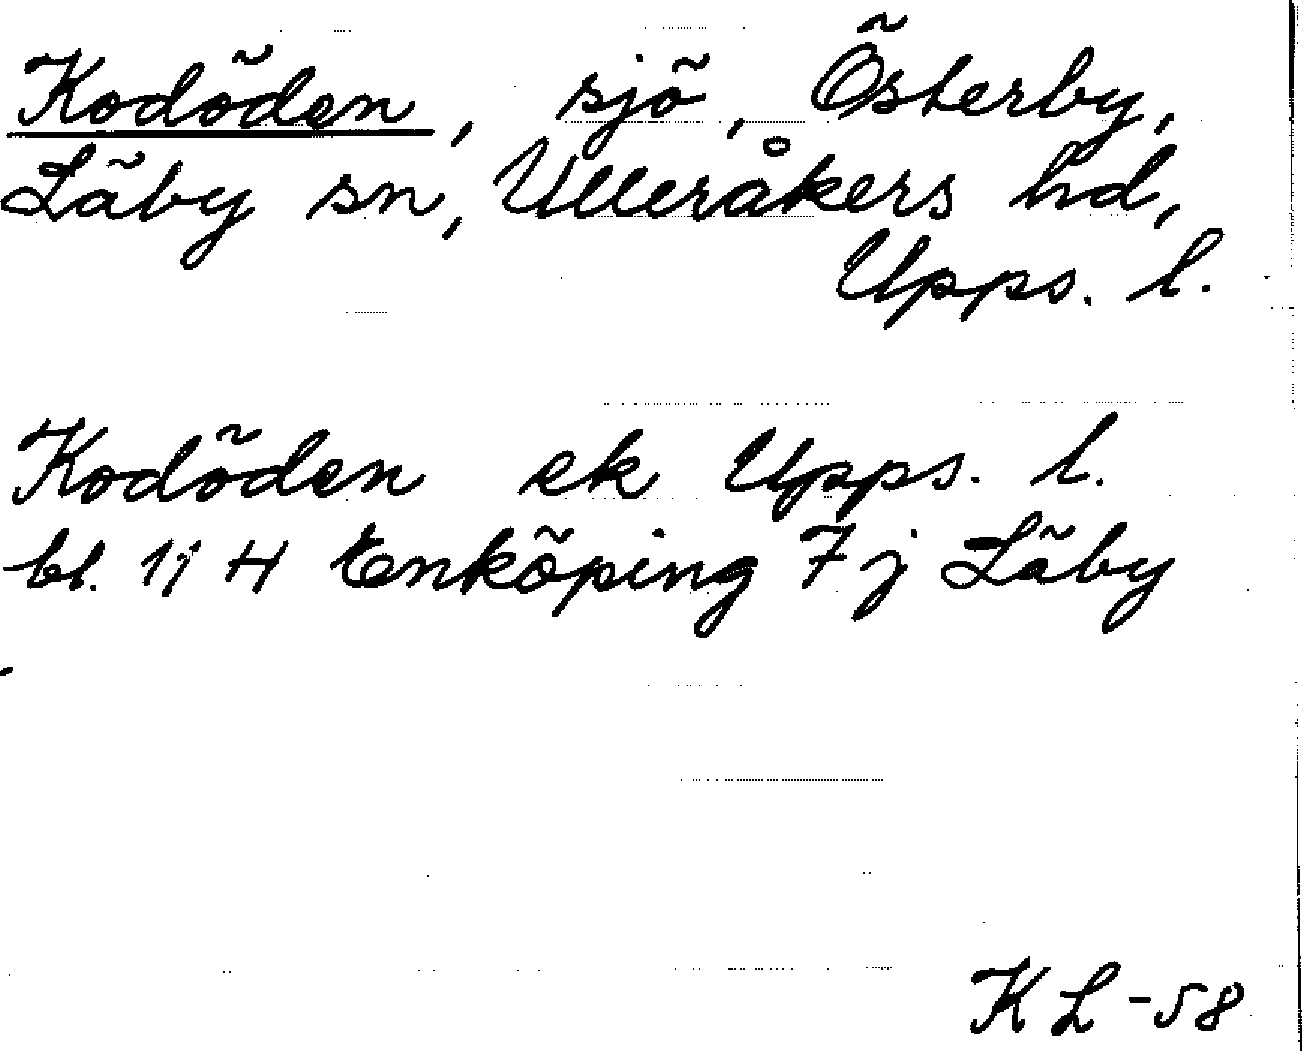 Kodöden, sjö, Österby,
Läby sn, Ulleråkers hd,
Upps. l.
Kodöden ek Upps. l.
bl. 11 H Enköping 7 j Läby
KL-58